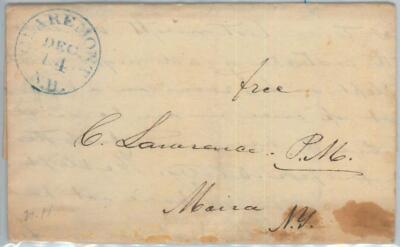 CLAREMONT
DEC
14
N.H.
free
C. Lawrence P.M.
Moira
N.Y.